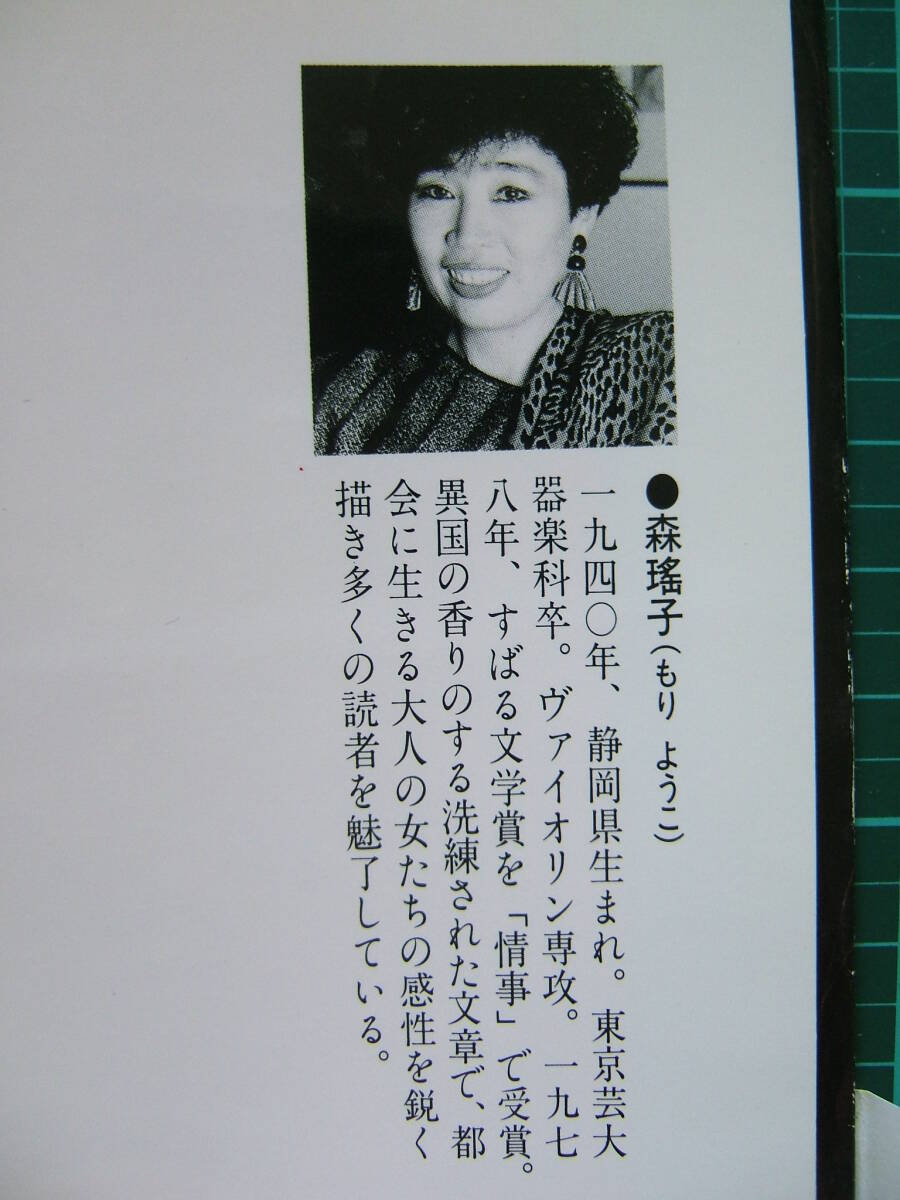 ●森瑤子(もり ようこ)
一九四〇年、静岡県生まれ。東京芸大
器楽科卒。ヴァイオリン専攻。一九七
八年、すばる文学賞を「情事」で受賞。
異国の香りのする洗練された文章で、都
会に生きる大人の女たちの感性を鋭く
描き多くの読者を魅了している。